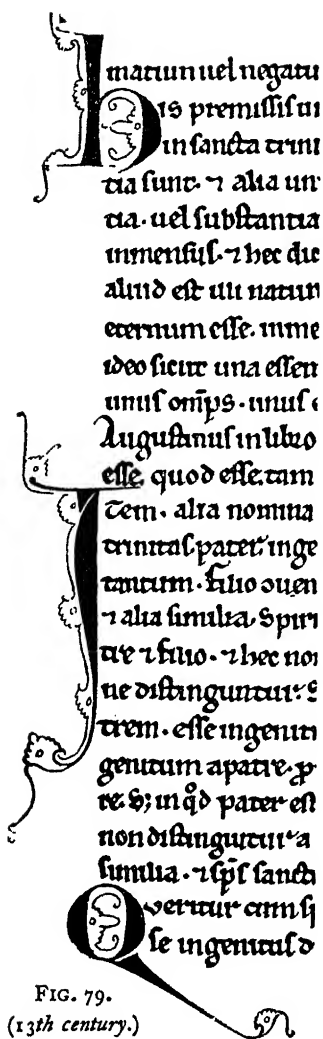 matiuu uel negatu
His premissis ui
in sancta trini
tia sunt. ⁊ alia un
tia. uel substantia
inmensus. ⁊ hec dic
aliud est illi natur
eternum esse. inme
ideo sicut una essen
unus om̅ps. unus
Augustinus in libro
esse. quod esse. tam
Item. alia nomina
trinitas. pater. inge
tantum. Filio ouen
⁊ alia similia. Spiri
tre ⁊ filio. ⁊ hec noi
ne distinguntur. S
trem. esse ingeniti
genitum a patre. ꝓ
re. S; in q̊d pater est
non distinguitur a
similia. ⁊ sp̅s sancti
Queritur cum si
se ingenitus d
FIG. 79.
(13th century.)